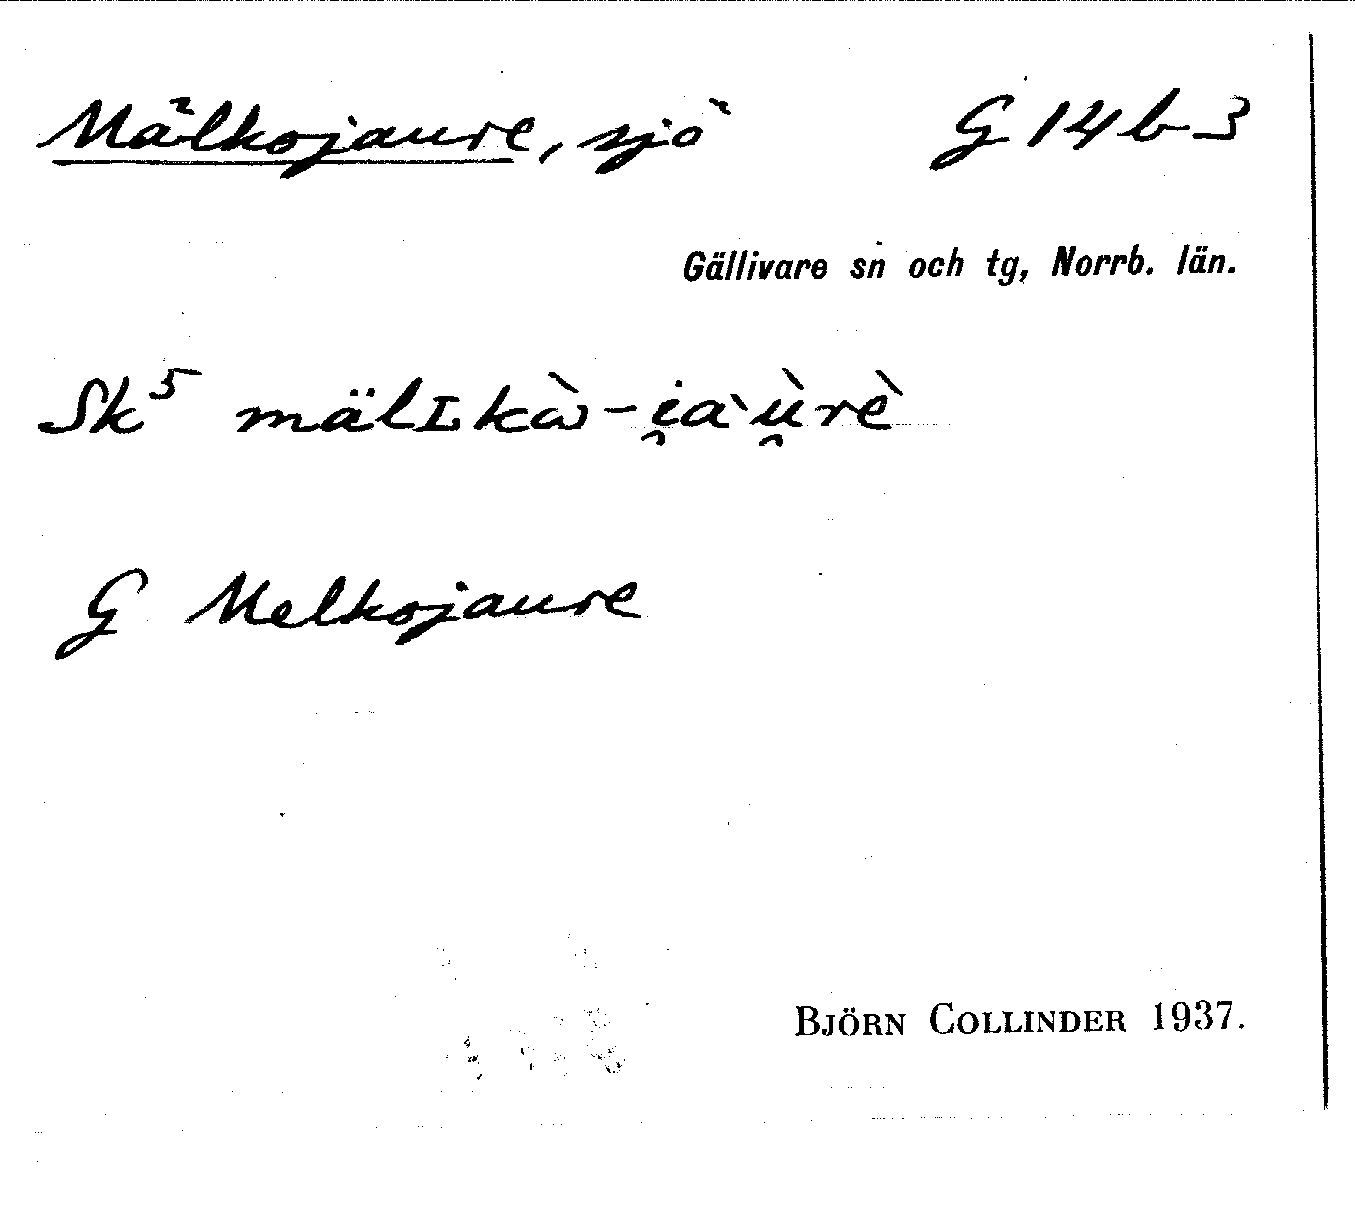 Mälkojaure, sjö G 14 b 3
Gällivare sn och tg, Norrb. län.
Sk⁵ mälʟkὼ-i̯a`ù̯rè
G Melkojaure
BJÖRN COLLINDER 1937.